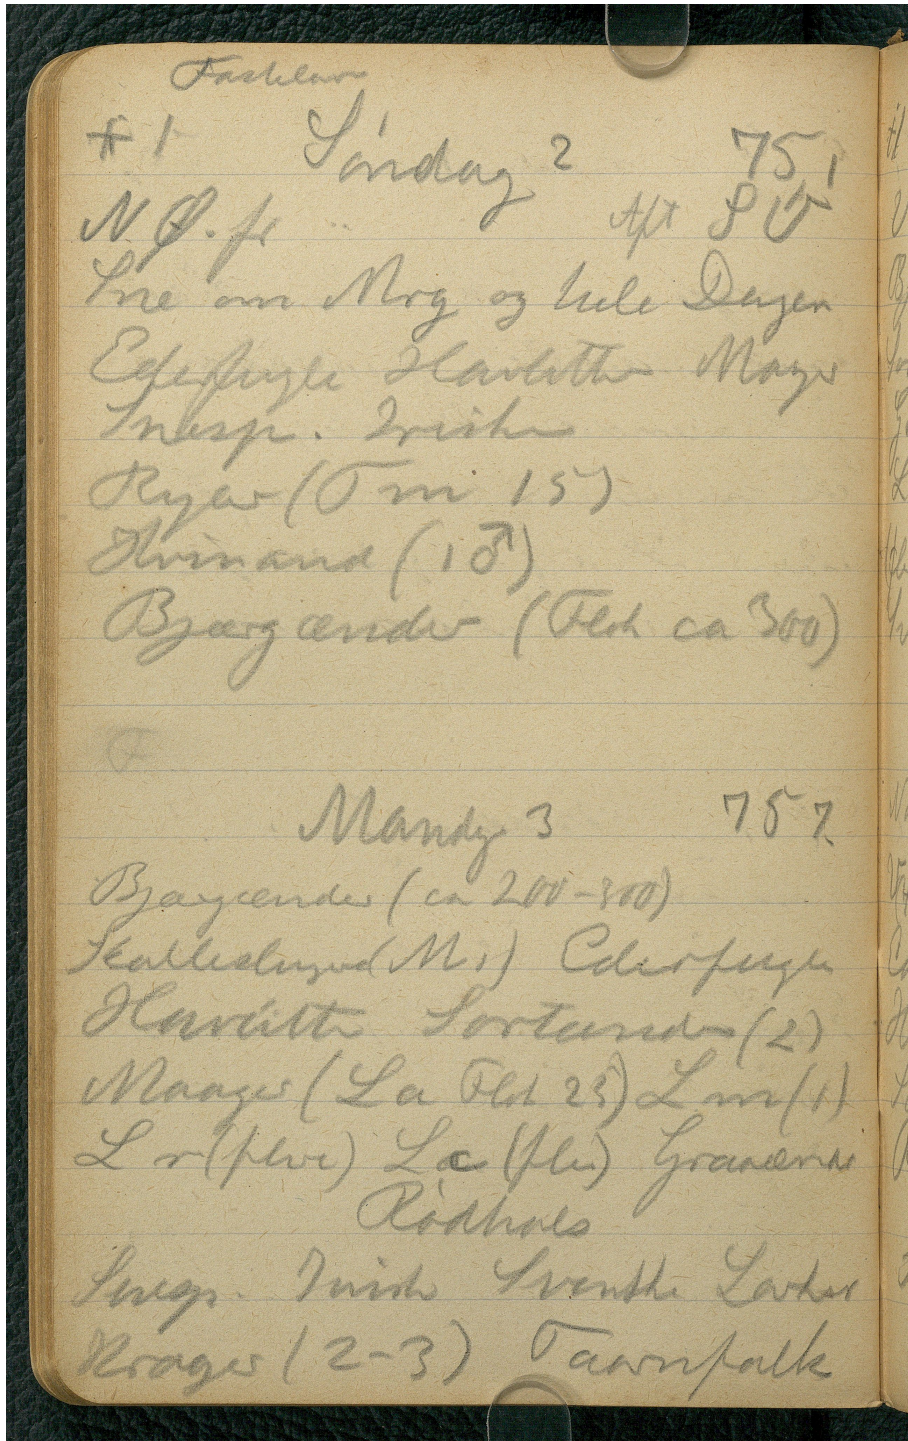 Fastelavn
+ 1 Søndag 2 751
N Ø. fr Aft SV
Sne om Mrg og hele Dagen
Ederfugle Havlitter Mager
Snesp. Irisker
Ryler (T m 15)
Hvinand (1 ♂)
Bjærgænder (Flok ca 300)
F
Mandg 3 757
Bjergænder (ca 200-300)
Skallesluger (M 1) Ederfugle
Havlitter Sortænder (2)
Maager (La Flok 25) L m (1)
L r (flere) L c (fle) Graaænder
Rødhals
Snesp. Irisk Svenske Lærker
Krager (2-3) Taarnfalk